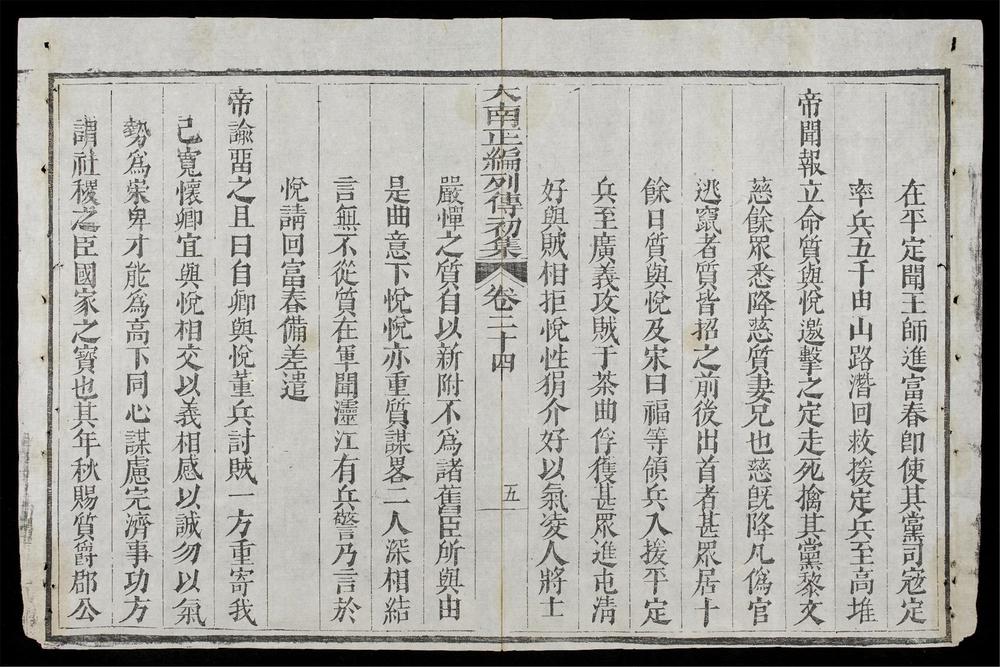 在平定聞王師進富春卽使其黨司寇定
率兵五千由山路潛回救援定兵至高堆
帝聞報立命質與悅邀擊之定走死擒其黨黎文
慈餘眾悉降慈質妻兄也慈既降凡偽官
逃竄者質皆招之前後出首者甚眾居十
餘日質與悅及宋曰福等領兵入援平定
兵至廣義攻賊于茶曲俘獲甚眾進屯淸
好與賊相拒悅性狷介好以氣凌人將士
大南正編列傳初集 卷二十四 五
嚴憚之質自以新附不爲諸舊臣所與由
是曲意下悅悅亦重質謀畧二人深相結
言無不從質在軍聞𤅷江有兵警乃言於
悅請回富春備差遣
帝諭畱之且曰自卿與悅董兵討賊一方重寄我
己寬懷卿宜與悅相交以義相感以誠勿以氣
勢爲崇卑才能爲高下同心謀慮完濟事功方
謂社稷之臣國家之寶也其年秋賜質爵郡公